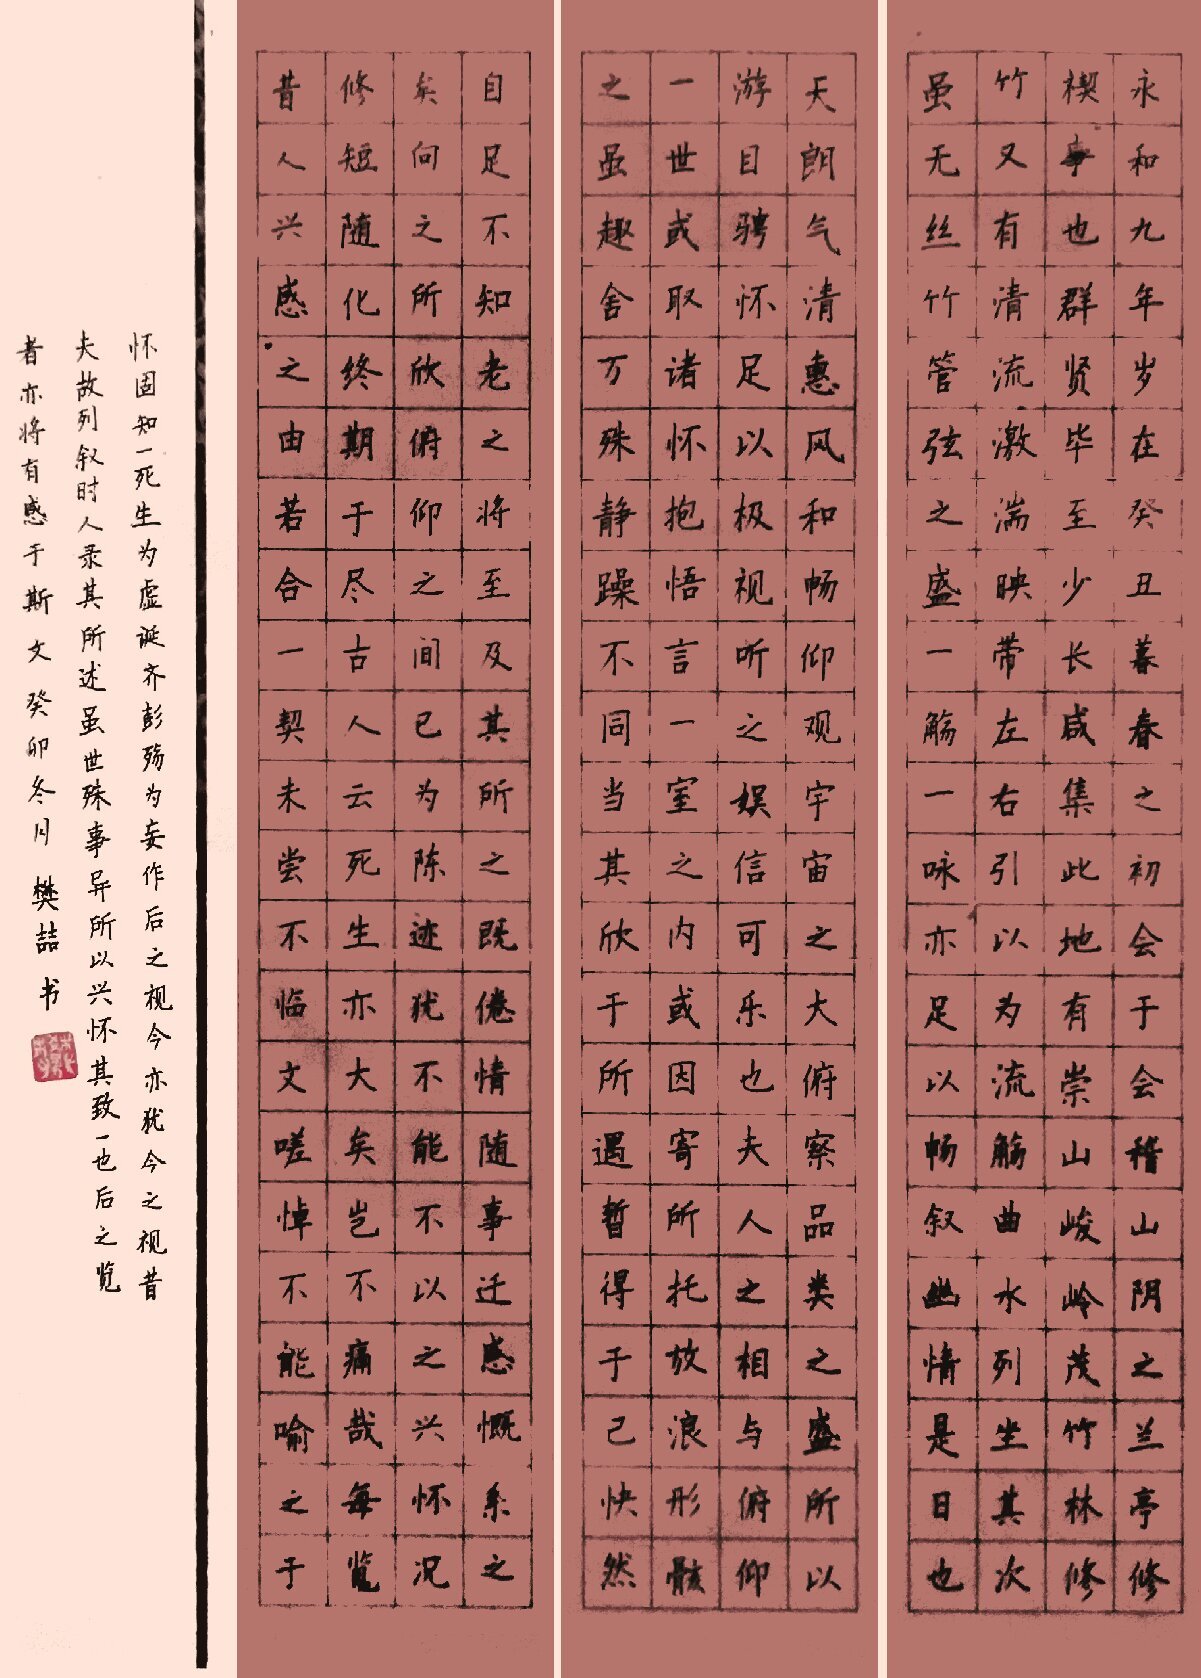 永和九年岁在癸丑暮春之初会于会稽山阴之兰亭修
禊事也群贤毕至少长咸集此地有崇山峻岭茂竹林修
竹又有清流激湍映带左右引以为流觞曲水列坐其次
虽无丝竹管弦之盛一觞一咏亦足以畅叙幽情是日也
天朗气清惠风和畅仰观宇宙之大俯察品类之盛所以
游目骋怀足以极视听之娱信可乐也夫人之相与俯仰
一世或取诸怀抱悟言一室之内或因寄所托放浪形骸
之虽趣舍万殊静躁不同当其欣于所遇暂得于己快然
自足不知老之将至及其所之既倦情随事迁感慨系之
矣向之所欣俯仰之间已为陈迹犹不能不以之兴怀况
修短随化终期于尽古人云死生亦大矣岂不痛哉每览
昔人兴感之由若合一契未尝不临文嗟悼不能喻之于
怀固知一死生为虚诞齐彭殇为妄作后之视今亦犹今之视昔
夫故列叙时人录其所述虽世殊事异所以兴怀其致一也后之览
者亦将有感于斯文癸卯冬月樊喆书